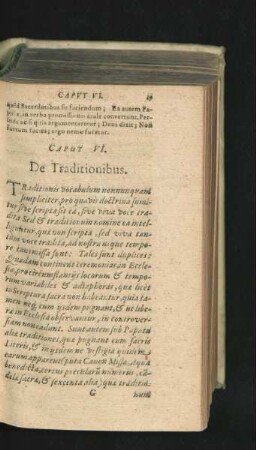 CAPUT VI.
quid sacerdotibus sit faciendum; Ea autem Pa-
in verba promissionis male convertunt. Per-
ac si quis argumentaretur; Deus dixit; Non
furtum facies; ergo nemo furatur.
CAPUT VI.
De Traditionibus.
TRaditionis vocabulum nonnunquam
simpliciter, pro quovis doctrina sumi-
tur sive scripta sit ea, sive viva voce tradi-
ta Sed & traditionum nomine ea intel-
liguntur, quæ non scripta, sed viva tan-
tum voce tradita, ad nostra usque tempo-
ra transmissa sunt: Tales sunt duplices:
Quædam continent ceremonias, in Eccle-
sia, pro circumstantiis locorum & tempo-
rum variabiles & adiaphoras, quæ licet
in scriptura sacra non habeantur, quia ta-
men cum iisdem pugnant, & ut libe-
ra in Ecclesia observantur, in controver-
siam non cadunt. Sunt autem sub Papatu
aliæ traditiones, quæ pugnant cum sacris
Literis, & in iisdem ne vestigia quidem
earum apparent (puta Canon Missæ, aqua
benedicta, certus precularum numerus, can-
delæ sacræ, & sexcenta alia) quæ traditio-
G num